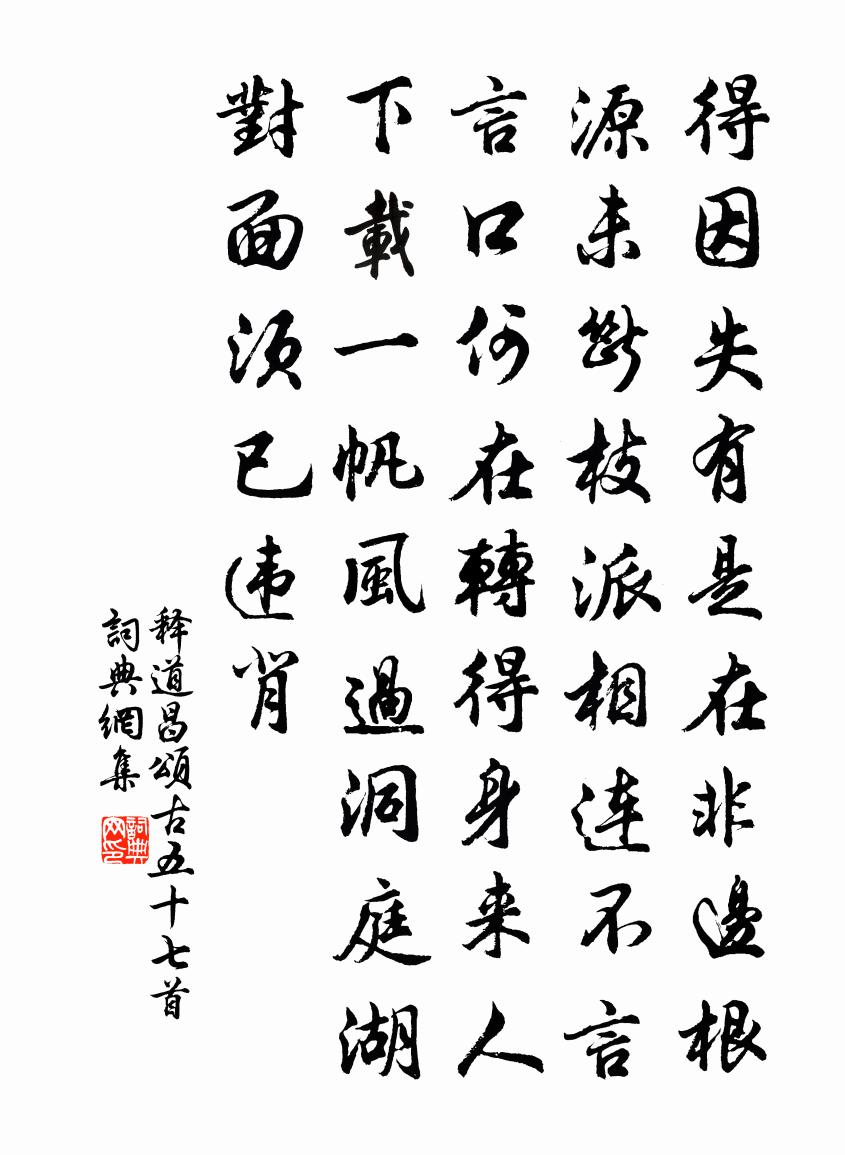 得因失有是在非邊根
源未斷枝派相连不言
言口何在轉得身来人
下載一帆風過洞庭湖
對面須已违背
释道昌頌古五十七首
詞典網集
詞典网印